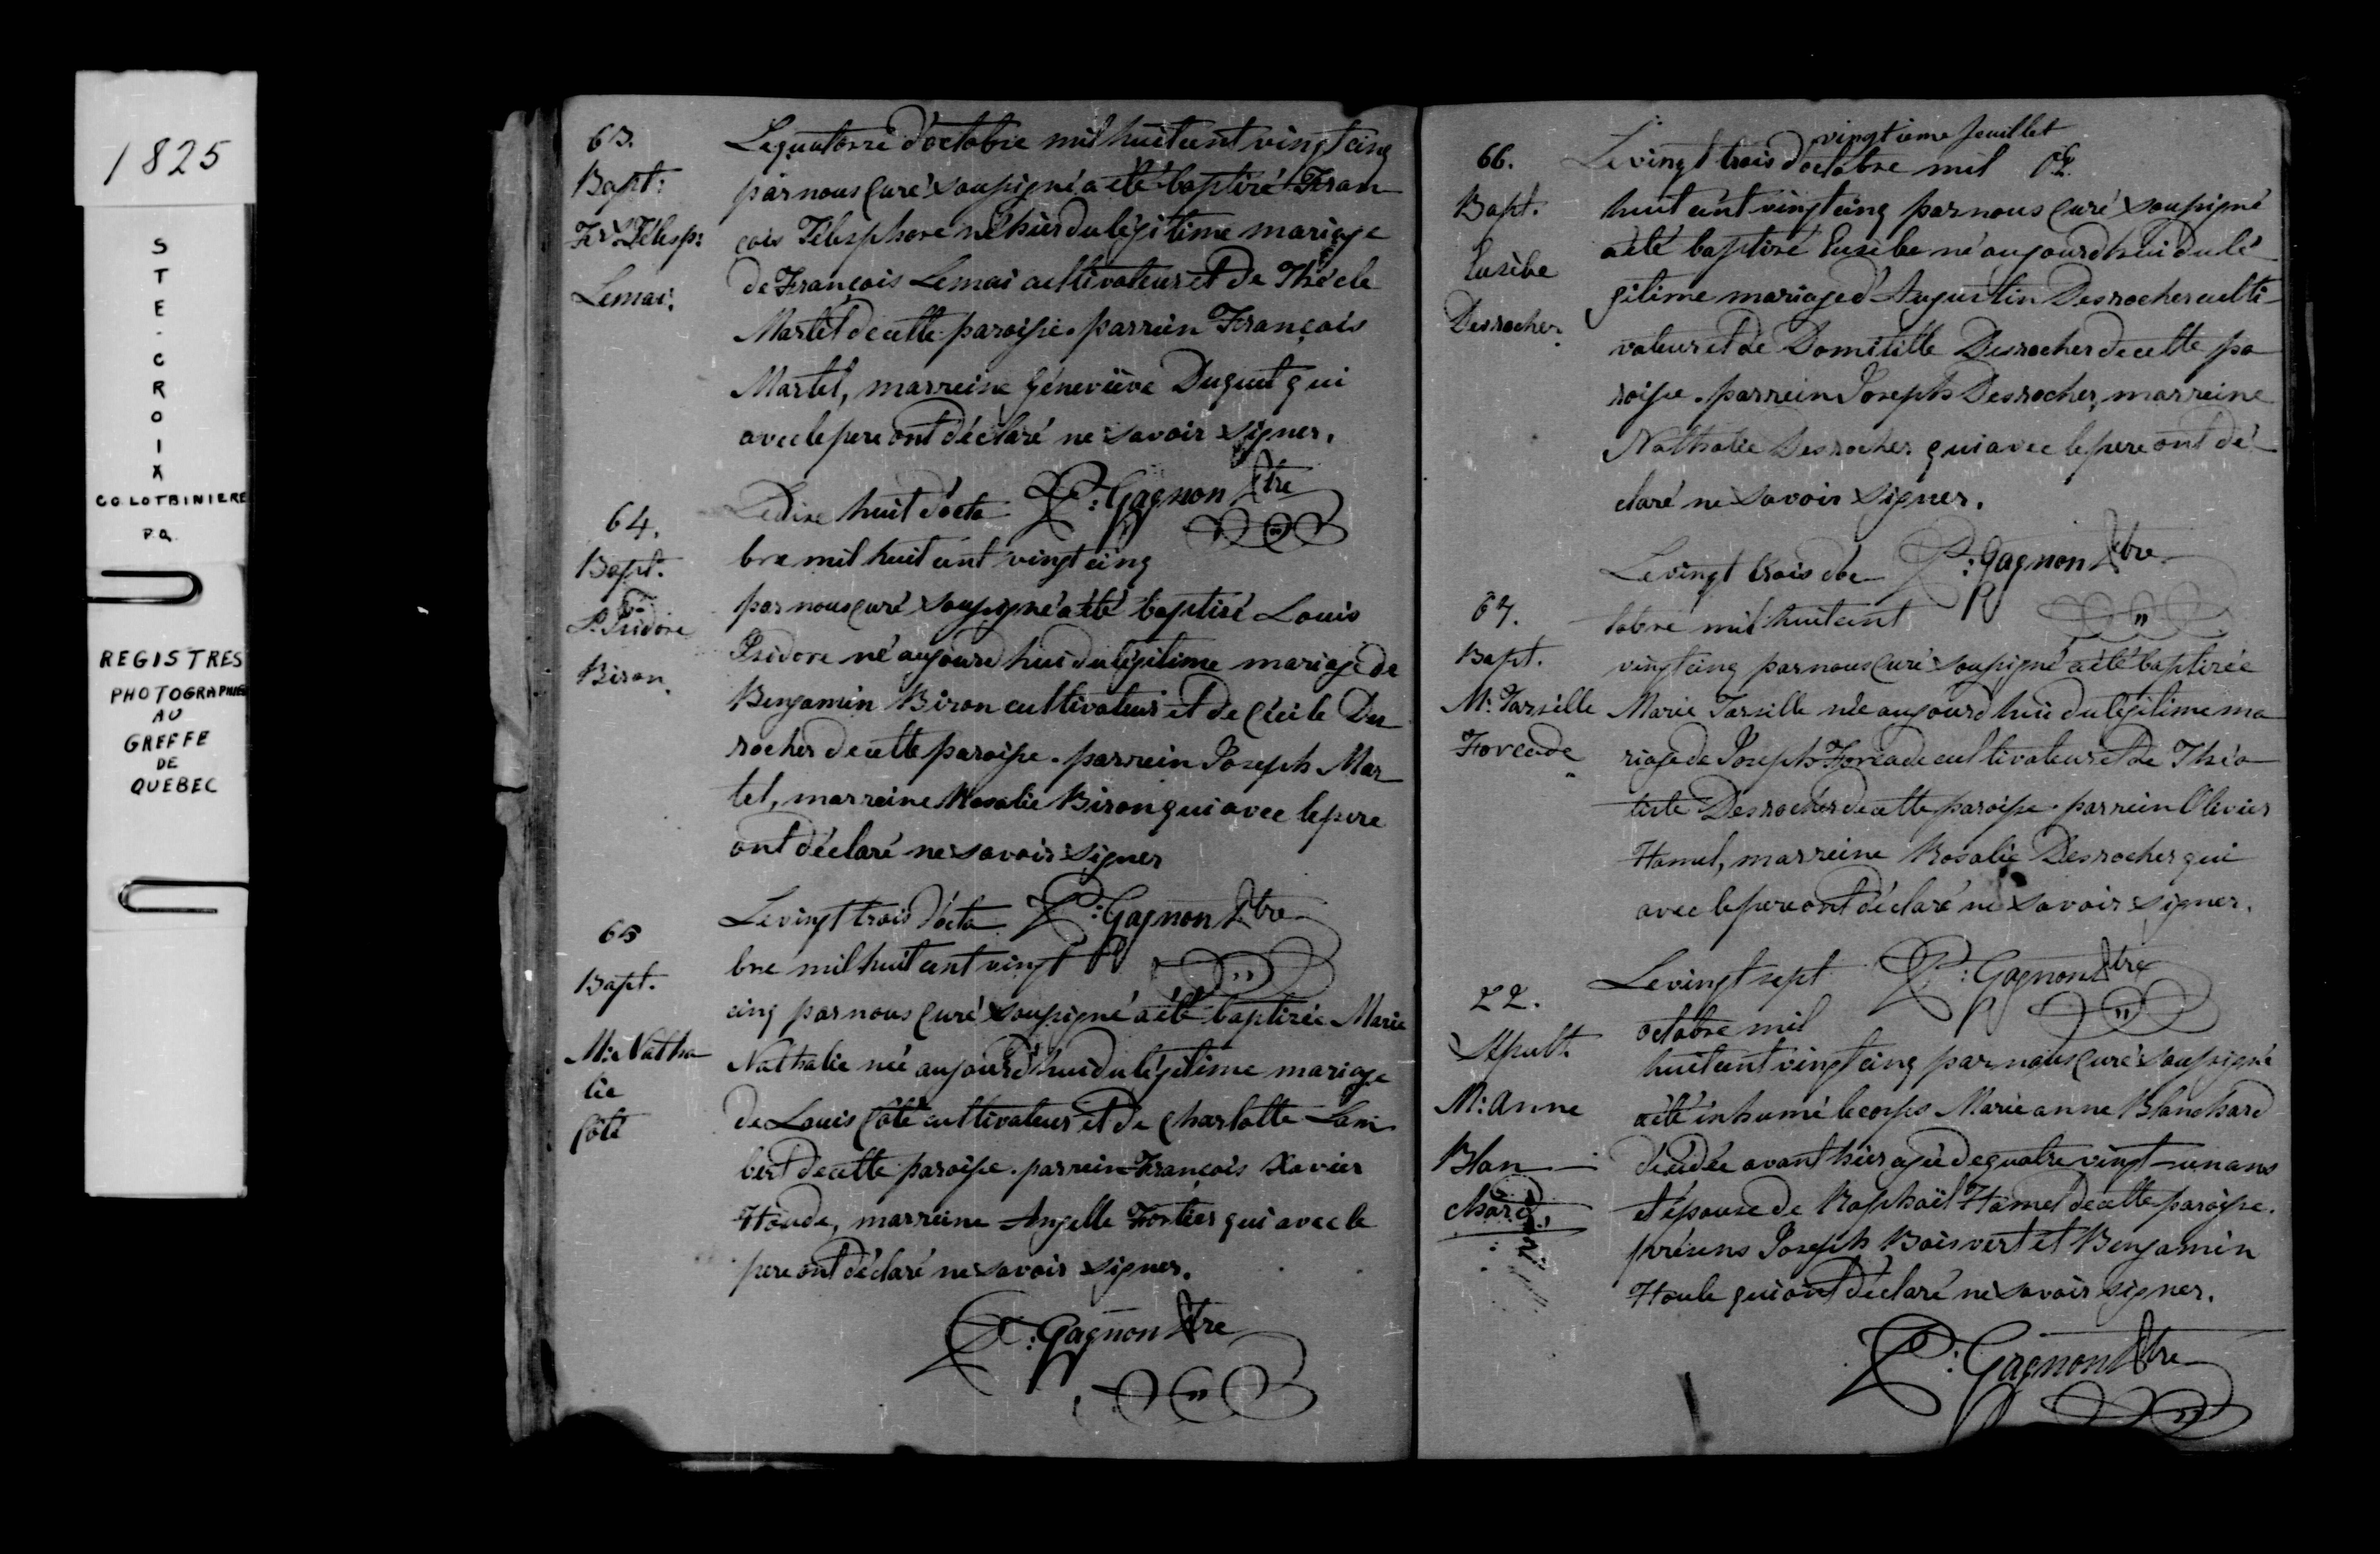 1825
STE-CROIX
CO LOTBINIERE
P.Q.
REGISTRES
PHOTOGRAPHIES
AU
GREFFE
DE
QUEBEC
63.
Bapt:
Frs Télesp:
Lemai.
Le quatorze d'octobre mil huit cent vingt cinq
par nous Curé soussigné a été baptizé Fran
çois Télesphore né hier du légitime mariage
de François Lemai cultivateur et de Thécle
Martel de cette paroisse. parrein François
Martel, marreine Géneviève Duguet qui
avec le pere ont déclaré ne savoir signer.
P: Gagnon Ptre
64.
Bapt.
Ls Isidore
Biron.
Le dixe huit d'octo
bre mil huit cent vingt cinq
par nous curé soussigné a été baptisé Louis
Isidore né aujourd'hui du légitime mariage de
Benjamin Biron cultivateur et de Cécile Du
rocher de cette paroisse. parrein Joseph Mar
tel, marreine Rosalie Biron qui avec le pere
ont déclaré ne savoir signer
P: Gagnon Ptre
65
Bapt.
M: Natha
lie
Côté
Le vingt trois d'octo
bre mil huit cent vingt
cinq par nous Curé soussigné a été baptizée Marie
Nathalie née aujourd'hui du légitime mariage
de Louis Côté cultivateur et de Charlotte Lam
bert de cette paroisse. parrein François Xavier
Houde, marreine Angelle Fortier qui avec le
pere ont déclaré ne savoir signer.
P: Gagnon Ptre
vingtieme feuillet
66.
Bapt.
Eusèbe
Desrocher.
Le vingt trois d'octobre mil
huit cent vingt cinq par nous Curé soussigné
a été baptizé Eusèbe né aujourd'hui du lé
gitime mariage d'Augustin Desrocher culti
vateur et de Domitille Desrocher de cette pa
roisse. parrein Joseph Desrocher, marreine
Nathalie Desrocher qui avec le pere ont dé
claré ne savoir signer.
P: Gagnon Ptre
67.
Bapt.
M: Tarsille
Forcade
Le vingt trois d'oc
tobre mil huit cent
vingt cinq par nous Curé soussigné a été baptizée
Marie Tarsille née aujourd'hui du légitime ma
riage de Joseph Forcade cultivateur et de Théo
tiste Desrocher de cette paroisse. parrein Olivier
Hamel, marreine Rosalie Desrocher qui
avec le pere ont déclaré ne savoir signer.
P: Gagnon Ptre
22.
Sepult.
M: Anne
Blan
chard.
Le vingt sept
octobre mil
huit cent vingt cinq par nous Curé soussigné
a été inhumé le corps Marie anne Blanchard
décédée avant hier agée de quatre vingt-un ans
et épouse de Raphaël Hamel de cette paroisse.
présens Joseph Boisvert et Benjamin
Houle qui ont déclaré ne savoir signer.
P: Gagnon Ptre